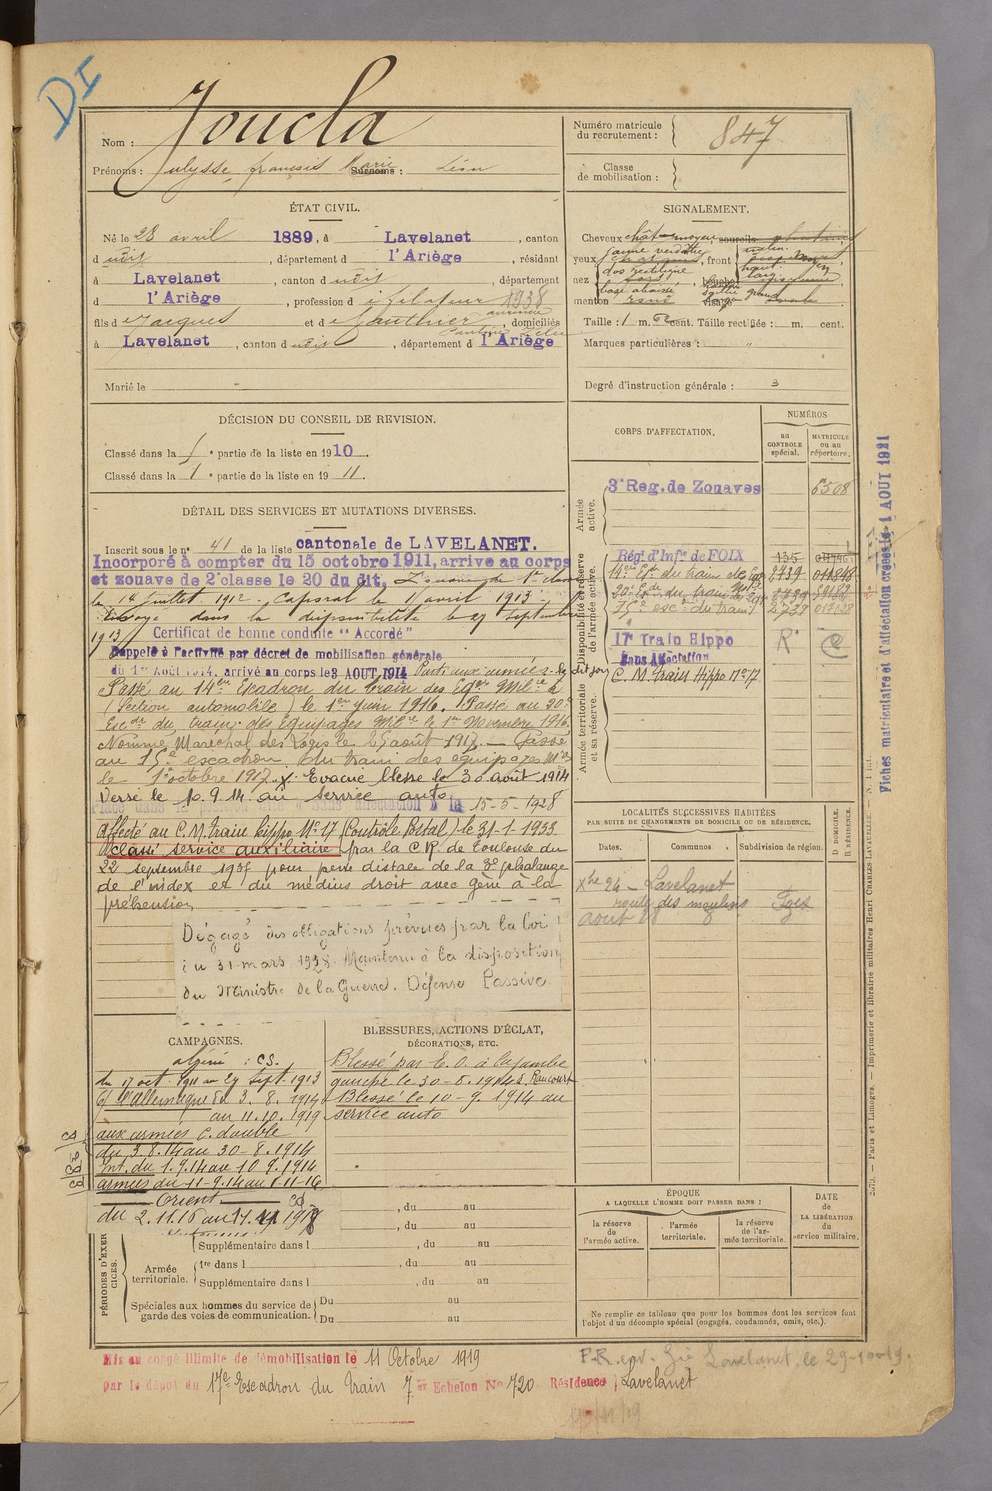 DI
Nom : Joucla
Prénoms : Julysse françois Marie Surnoms : Léon
Numéro matricule du recrutement : 847
Classe de mobilisation :
ÉTAT CIVIL.
Né le 28 avril 1889, à Lavelanet, canton
d udit, département d l'Ariège, résidant
à Lavelanet, canton d udit, département
d l'Ariège, profession d fileteur 1938
fils d Jacques et d Gauthier, domiciliés
à Lavelanet, canton d udit, département d l'Ariège
Marié le
SIGNALEMENT.
Cheveux chât moyen, sourcils
yeux jaune verdâtre, front
nez dos rectiligne, bouche
menton visage
Taille : 1 m. cent. Taille rectifiée : m. cent.
Marques particulières : "
Degré d'instruction générale : 3
DÉCISION DU CONSEIL DE REVISION.
Classé dans la 1e partie de la liste en 1910.
Classé dans la 1e partie de la liste en 1911.
DÉTAIL DES SERVICES ET MUTATIONS DIVERSES.
Inscrit sous le no 41 de la liste cantonale de LAVELANET.
Incorporé à compter du 15 octobre 1911, arrive au corps
et zouave de 2e classe le 20 du dit, Zouave de 1e classe
le 1er juillet 1912. Caporal le 1 avril 1913
Envoyé dans la disponibilité le 27 Septembre
1913 Certificat de bonne conduite "Accordé"
Rappelé à l'activité par décret de mobilisation générale
du 1er Août 1914, arrivé au corps le 3 AOUT 1914 Parti aux armées le dit jour
Passé au 14e Escadron du train des Eqges Milres
(Section automobile) le 1er Juin 1916. Passé au 20e
Escon du train des Equipages Milre le 1er Novembre 1916
Nommé Maréchal des Logis le 25 août 1917. Passé
au 15e escadron du train des équipages Mres
le 1er octobre 1917. X Evacué blessé le 30 août 1914
Versé le 10.9.14 au service auto
Placé dans la position dite "Sans affectation" le 15-5-1928
affecté au C.M. Train hippo No 17 (Contrôle Postal) le 31-1-1933
Classé service auxiliaire par la C.R. de Toulouse du
22 septembre 1936 pour perte distale de la 3e phalange
de l'index et du médius droit avec gêne à la
préhension
Dégagé des obligations prévues par la loi
du 31 mars 1928. Maintenu à la disposition
du Ministre de la Guerre. Défense Passive.
CORPS D'AFFECTATION.
NUMÉROS
au CONTROLE spécial.
MATRICULE ou au répertoire.
Armée active.
3e Reg. de Zouaves 6508
Disponibilité et réserve de l'armée active.
Régt d'Infie de FOIX 135
15e escon du train 2728
17e Train Hippo R
Sans Affectation
C. M. Train Hippo No 17
Armée territoriale et sa réserve.
Fiches matriculaire et d'affectation créées le 1 AOUT 1921
LOCALITÉS SUCCESSIVES HABITÉES
PAR SUITE DE CHANGEMENTS DE DOMICILE OU DE RÉSIDENCE.
Dates. Communes Subdivision de région. D DOMICILE. R RÉSIDENCE.
Xbre 24 Lavelanet
route des moulins Foix
CAMPAGNES.
algérie : CS.
du 17 oct. 1911 au 27 Sept. 1913
C/ l'allemagne du 3.8.1914
au 11.10.1919
aux armées C. double
du 3.8.14 au 30-8.1914
Int. du 1.9.14 au 10.9.1914
armées du 11-9.14 au 1.11-16
Orient cd
BLESSURES, ACTIONS D'ÉCLAT,
DÉCORATIONS, ETC.
Blessé par E.O. à la jambe
gauche le 30-8.1914 à Raucourt
Blessé le 10-9.1914 au
service auto
PÉRIODES D'EXERCICES.
, du au
, du au
Armée territoriale.
Supplémentaire dans l , du au
1re dans l , du au
Supplémentaire dans l , du au
Spéciales aux hommes du service de garde des voies de communication.
Du au
Du au
ÉPOQUE
A LAQUELLE L'HOMME DOIT PASSER DANS :
la réserve de l'armée active.
l'armée territoriale.
la réserve de l'armée territoriale.
DATE DE LA LIBÉRATION du service militaire.
Ne remplir ce tableau que pour les hommes dont les services font
l'objet d'un décompte spécial (engagés, condamnés, omis, etc.).
Paris et Limoges. — Imprimerie et librairie militaires Henri CHARLES-LAVAUZELLE.
Mis en congé illimité de démobilisation le 11 Octobre 1919
par le dépôt du 17e Escadron du Train 7e Echelon No 720 Résidence Lavelanet
Lavelanet, le 29-10-19.